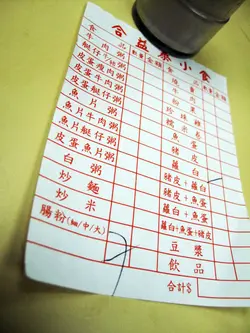 合益泰小食
食品 數量 金額 食品 數量 金額
牛肉粥
艇仔粥
皮蛋瘦肉粥
皮蛋牛肉粥
魚片粥
魚片牛肉粥
魚片艇仔粥
皮蛋魚片粥
白粥
炒麵
炒米
腸粉(細/中/大)
珍珠雞
糯米卷
魚蛋
豬皮
蘿白
豬皮+蘿白
豬皮+魚蛋
蘿白+魚蛋
蘿白+魚蛋+豬皮
豆漿
飲品
合計$